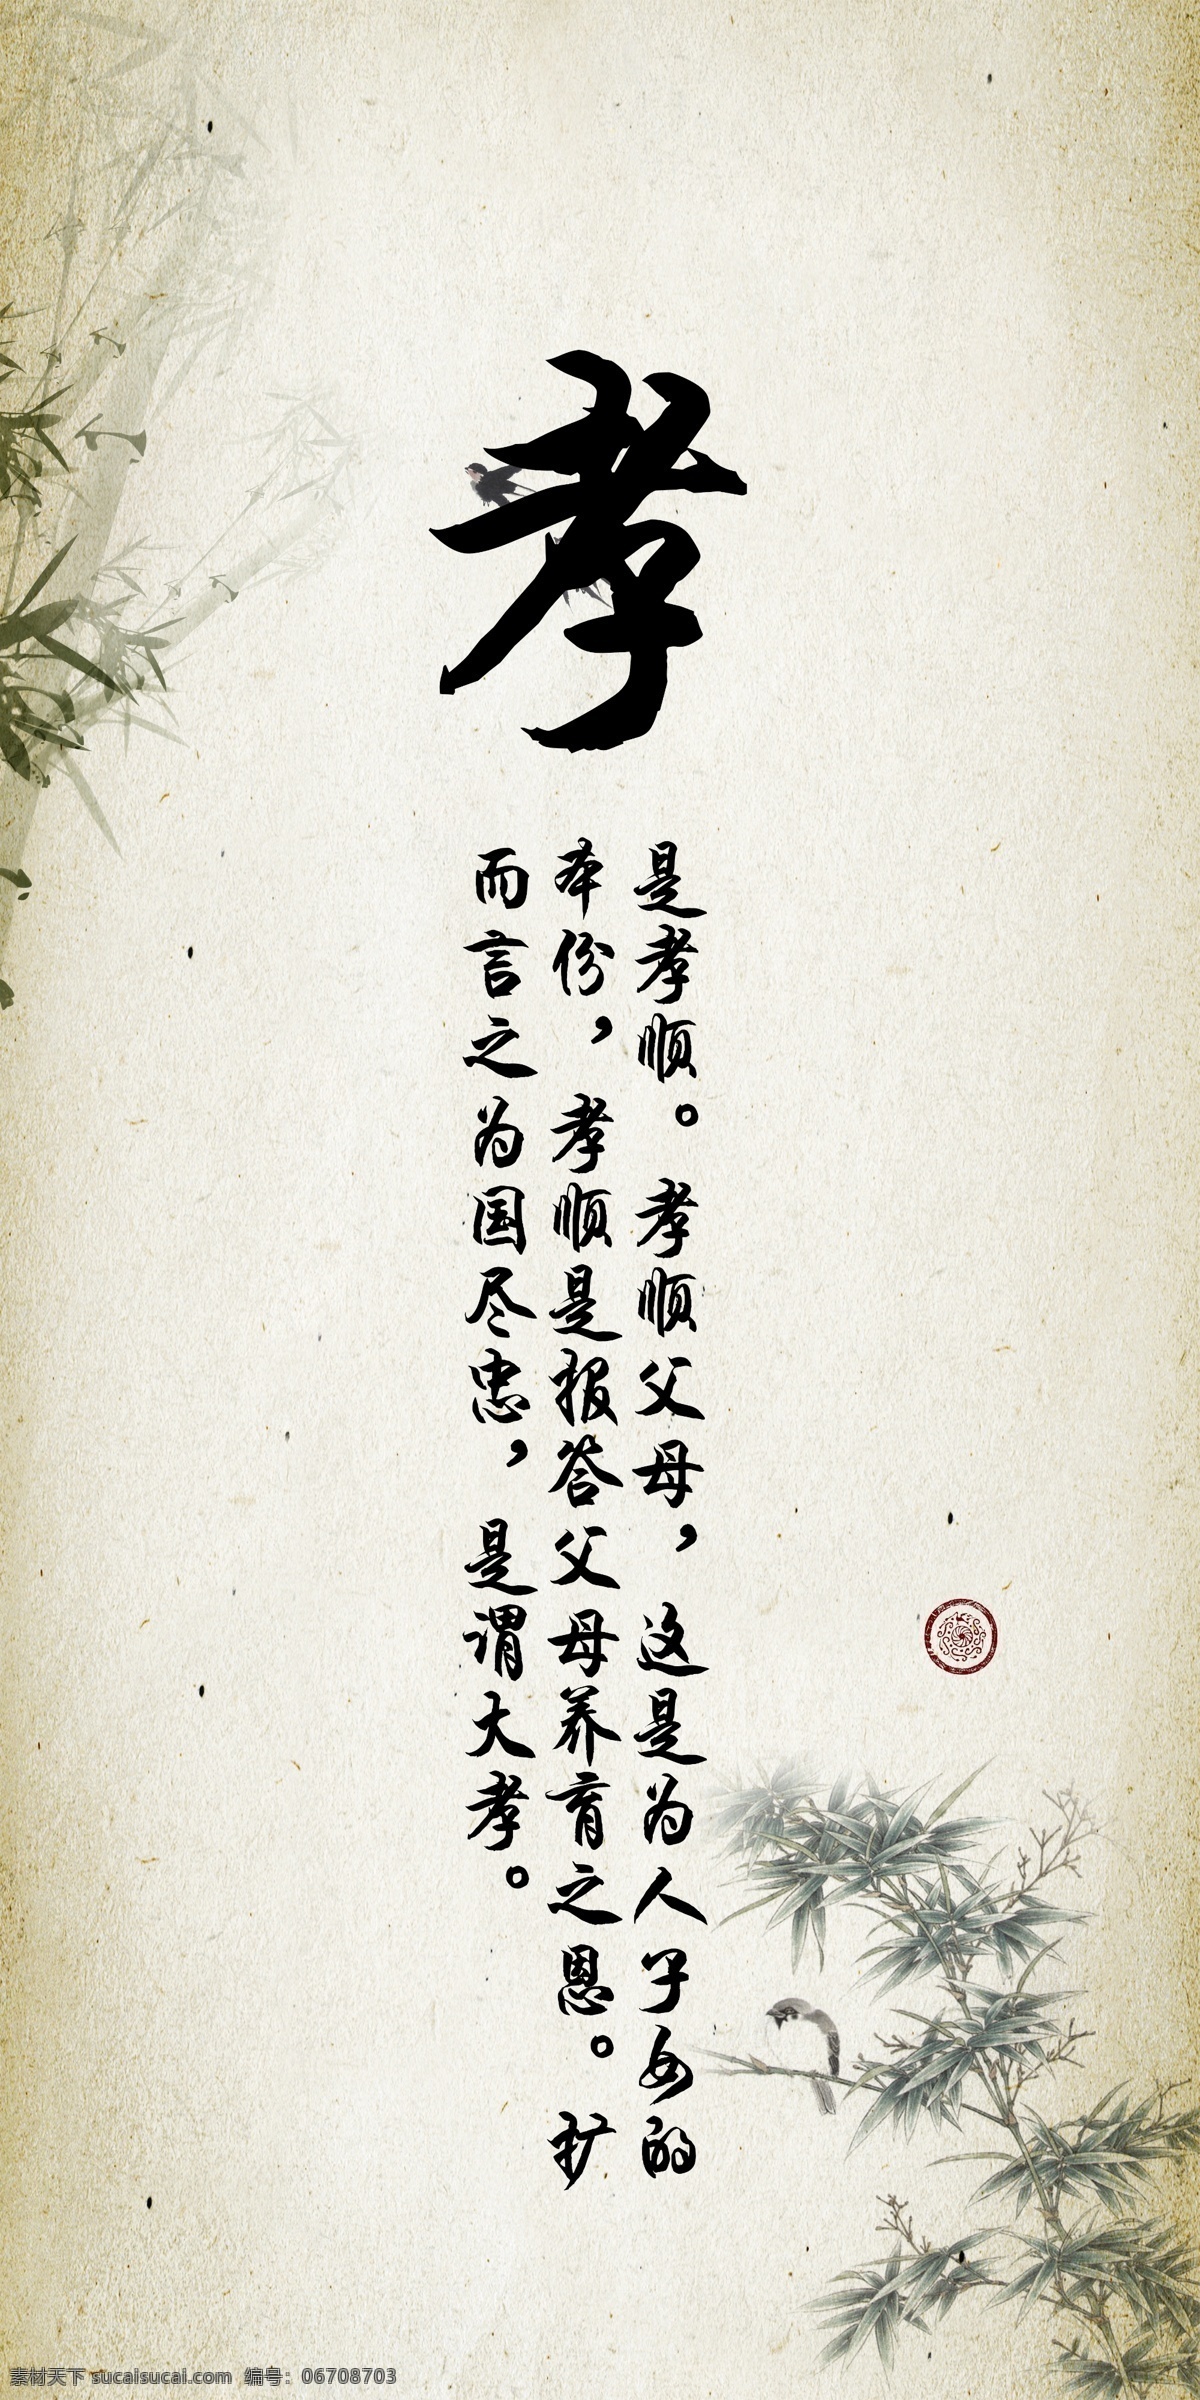 孝
是孝顺。孝顺父母，这是为人子女的
本份，孝顺是报答父母养育之恩。扩
而言之为国尽忠，是谓大孝。
素材天下 sucaisucai.com 编号：06708703